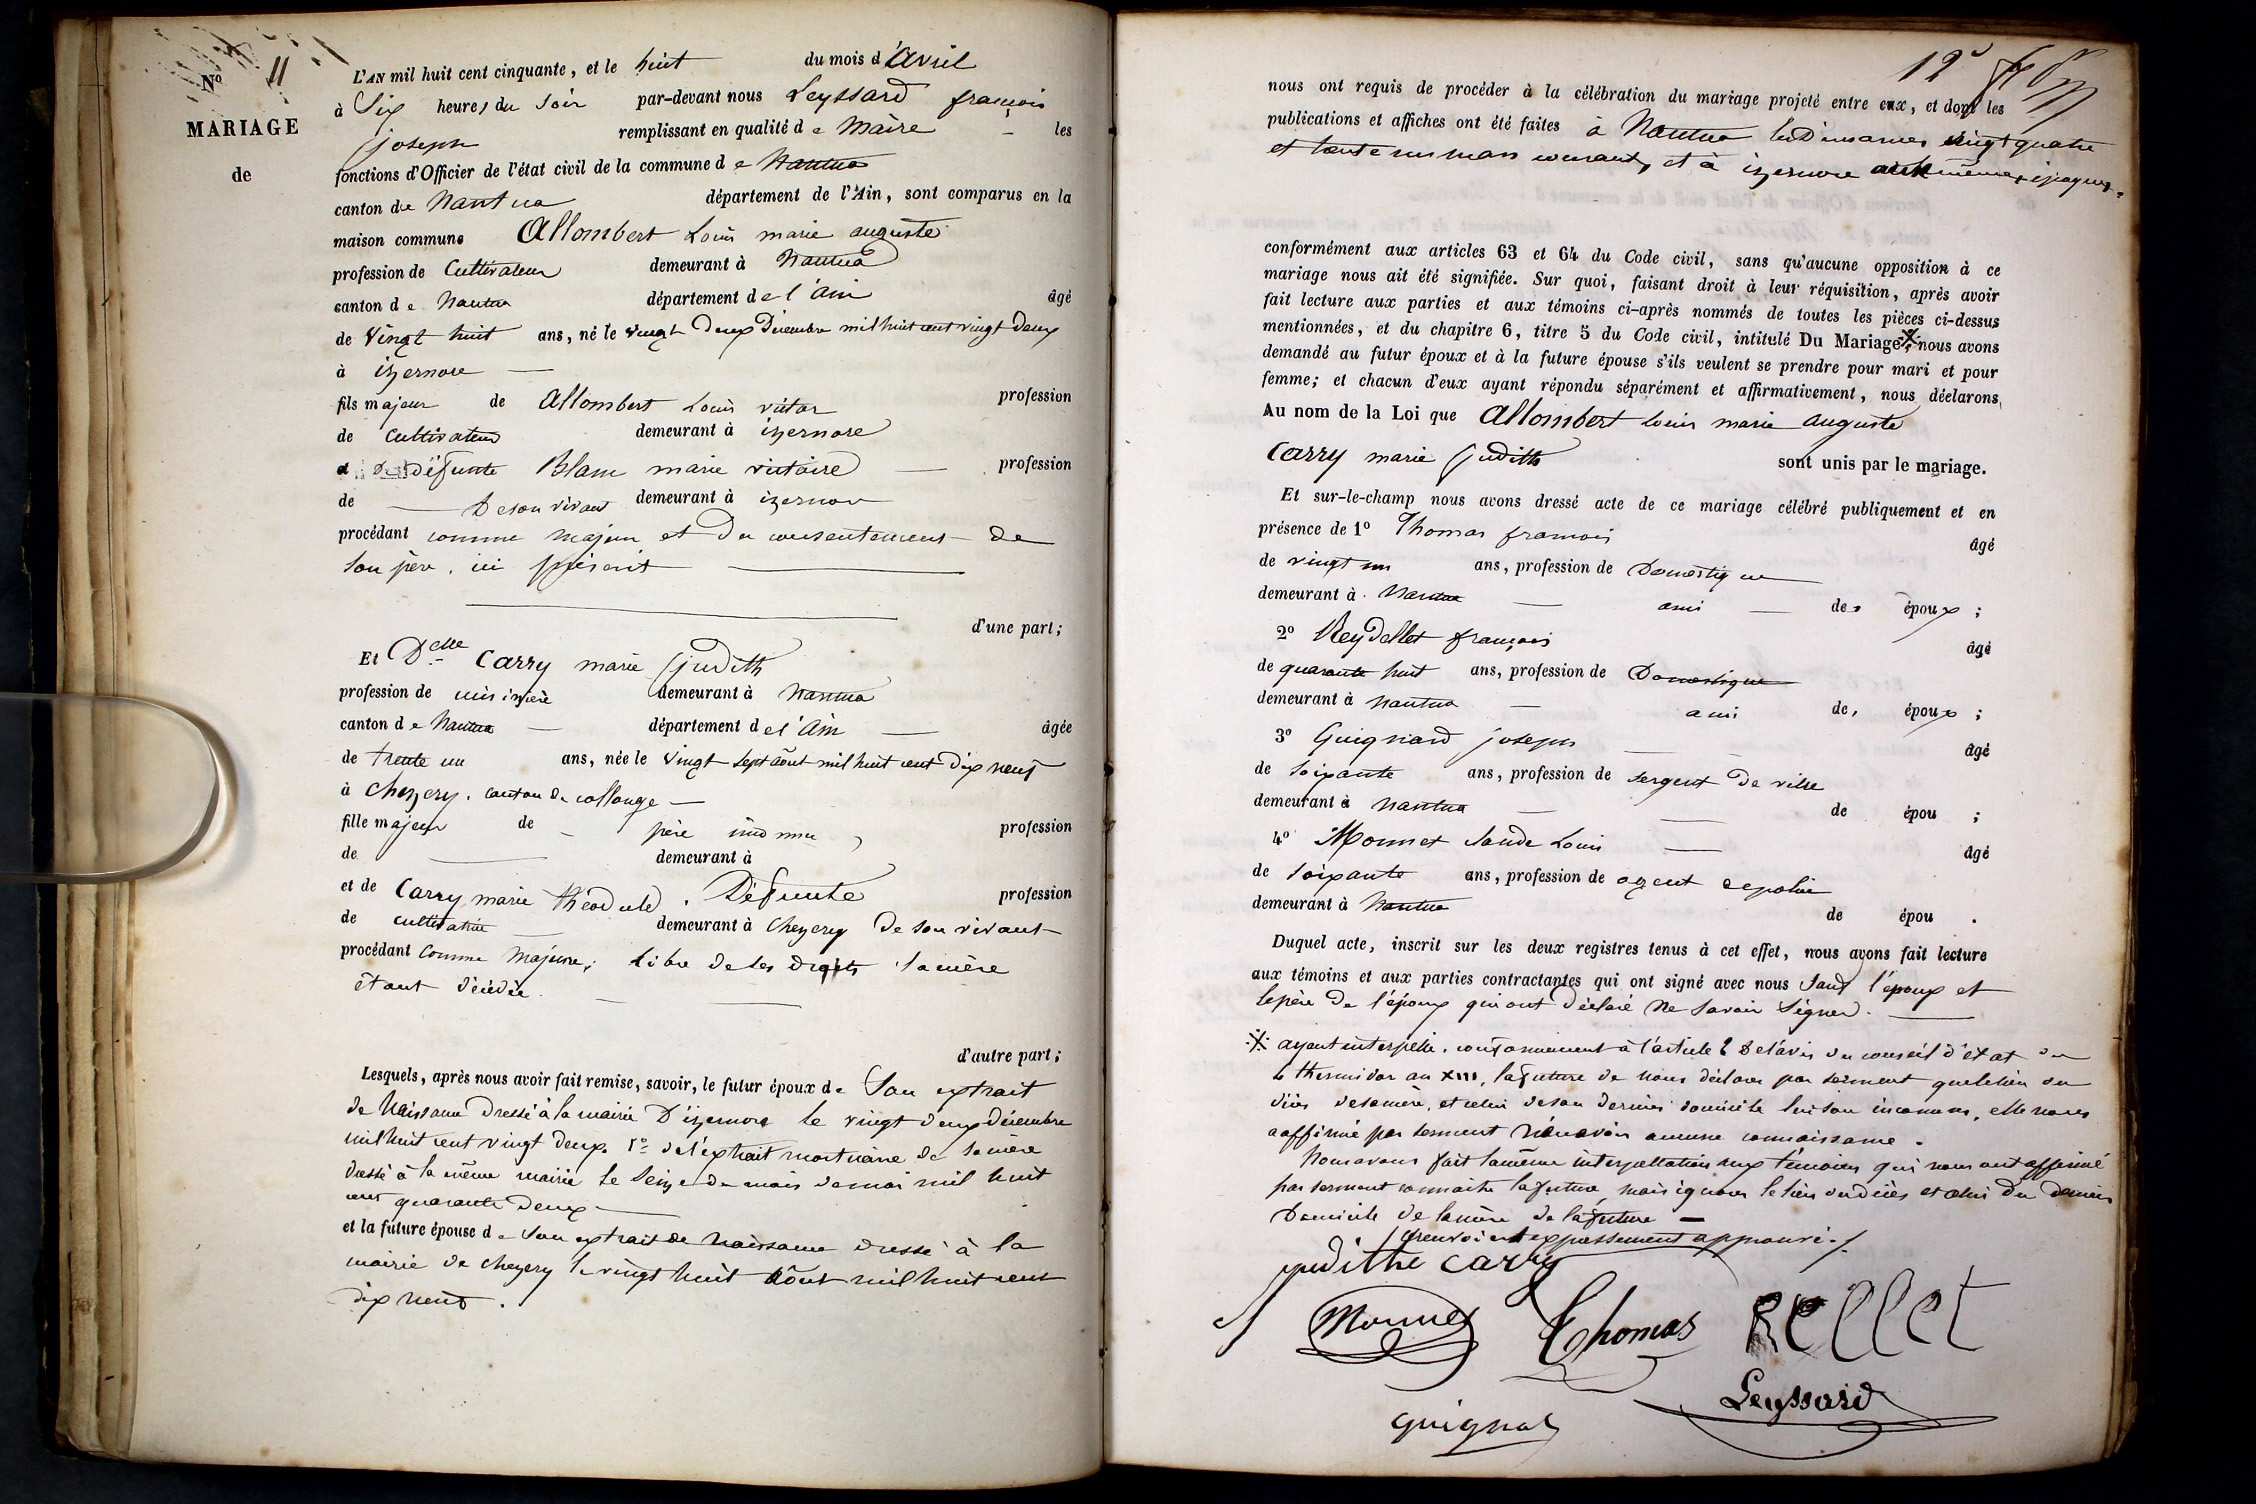 N° 11
MARIAGE
de
L'AN mil huit cent cinquante, et le huit du mois d'Avril
à Six heures du Soir par-devant nous Leyssard françois
joseph remplissant en qualité de Maire les
fonctions d'Officier de l'état civil de la commune de Nantua
canton de Nantua département de l'Ain, sont comparus en la
maison commune Allombert Louis marie auguste
profession de Cultivateur demeurant à Nantua
canton de Nantua département de l'ain âgé
de Vingt huit ans, né le vingt deux Décembre mil huit cent vingt deux
à izernore
fils majeur de Allombert Louis victor profession
de Cultivateur demeurant à izernore
et défunte Blanc marie victoire profession
de De son vivant demeurant à izernore
procédant comme majeur et du consentement de
son père, ici présent
d'une part;
Et Delle Carry marie judith
profession de cuisinière demeurant à Nantua
canton de Nantua département de l'ain âgée
de trente un ans, née le Vingt sept août mil huit cent dix neuf
à Chezery, canton de collonge
fille majeur de père inconnu, profession
de demeurant à
et de Carry marie théodule, Défunte profession
de cultivatrice demeurant à Chezery De son vivant
procédant comme majeure, libre de ses droits sa mère
étant décédée.
d'autre part;
Lesquels, après nous avoir fait remise, savoir, le futur époux de Son extrait
de Naissance Dressé à la mairie D'izernore le vingt deux décembre
mil huit cent vingt deux. de l'extrait mortuaire de sa mère
dressé à la même mairie le seize du mois de mai mil huit
cent quarante deux
et la future épouse de son extrait de Naissance dressé à la
mairie de chezery le vingt huit Août mil huit cent
dix neuf.
12
nous ont requis de procéder à la célébration du mariage projeté entre eux, et dont les
publications et affiches ont été faites à Nantua les Dimanches vingt quatre
et trente un mars courant, et à izernore aux mêmes époques.
conformément aux articles 63 et 64 du Code civil, sans qu'aucune opposition à ce
mariage nous ait été signifiée. Sur quoi, faisant droit à leur réquisition, après avoir
fait lecture aux parties et aux témoins ci-après nommés de toutes les pièces ci-dessus
mentionnées, et du chapitre 6, titre 5 du Code civil, intitulé Du Mariage, nous avons
demandé au futur époux et à la future épouse s'ils veulent se prendre pour mari et pour
femme; et chacun d'eux ayant répondu séparément et affirmativement, nous déclarons
Au nom de la Loi que Allombert Louis marie auguste
Carry marie judith sont unis par le mariage.
Et sur-le-champ nous avons dressé acte de ce mariage célébré publiquement et en
présence de 1° Thomas francois âgé
de vingt un ans, profession de Domestique
demeurant à Nantua ami des époux;
2° Reydellet françois âgé
de quarante huit ans, profession de Domestique
demeurant à Nantua ami des époux;
3° Guignard joseph âgé
de soixante ans, profession de sergent de ville
demeurant à Nantua de épou ;
4° Monnet Claude Louis âgé
de soixante ans, profession de agent de police
demeurant à Nantua de épou .
Duquel acte, inscrit sur les deux registres tenus à cet effet, nous avons fait lecture
aux témoins et aux parties contractantes qui ont signé avec nous Sauf l'époux et
le père de l'époux qui ont déclaré Ne savoir Signer.
ayant interpellé, conformément à l'article 2 de l'avis du conseil d'état du
4 thermidor an XIII, la future de nous déclarer par serment que le lieu du
décès de sa mère, et celui de son dernier domicile lui son inconnus, elle nous
a affirmé par serment n'en avoir aucune connaissance.
Nous avons fait la même interpellation aux témoins qui nous ont affirmé
par serment connaitre la future, mais ignorer le lieu du décès et celui du dernier
Domicile de la mère de la future
renvoi expressement approuvé.
judithe carry
Monnet Thomas Rellet
Leyssard
Guignard